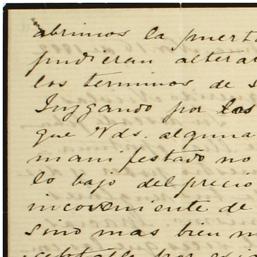 abrimos la puert
pudieran altera
los terminos de s
Juzgando por las
que Vds. alguna
manifestado no
lo bajo del precio
inconveniente de
sino mas bien